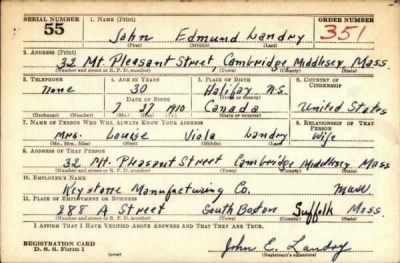 SERIAL NUMBER 1. NAME (Print) ORDER NUMBER
55 John Edmund Landry 351
(First) (Middle) (Last)
2. ADDRESS (Print)
32 Mt. Pleasant Street Cambridge Middlesex Mass.
(Number and street or R. F. D. number) (Town) (County) (State)
3. TELEPHONE 4. AGE IN YEARS 5. PLACE OF BIRTH 6. COUNTRY OF CITIZENSHIP
None 30 Halifax N.S.
DATE OF BIRTH (Town or county)
7 27 1910 Canada United States
(Exchange) (Number) (Mo.) (Day) (Yr.) (State or country)
7. NAME OF PERSON WHO WILL ALWAYS KNOW YOUR ADDRESS 8. RELATIONSHIP OF THAT PERSON
Mrs. Louise Viola Landry Wife
(Mr., Mrs., Miss) (First) (Middle) (Last)
9. ADDRESS OF THAT PERSON
32 Mt. Pleasant Street Cambridge Middlesex Mass
(Number and street or R. F. D. number) (Town) (County) (State)
10. EMPLOYER'S NAME
Keystone Manufacturing Co.
11. PLACE OF EMPLOYMENT OR BUSINESS
288 A Street South Boston Suffolk Mass.
(Number and street or R. F. D. number) (Town) (County) (State)
I AFFIRM THAT I HAVE VERIFIED ABOVE ANSWERS AND THAT THEY ARE TRUE.
REGISTRATION CARD
D. S. S. Form 1 John E. Landry
(Registrant's signature)